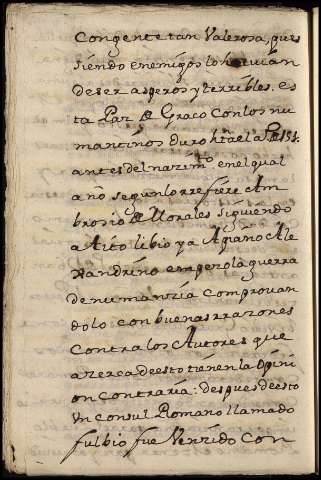 Con gente tan Valerosa, que
siendo enemigos lo havian
de ser asperos y terribles. es
ta Paz de Graco con los nu
mantinos duro hta el año 154.
antes del nazimto. en el qual
año segun lo rrefiere Am
brosio de Morales siguiendo
a Tito libio y a Apiano Ale
xandrino empezo la guerra
de numanzia comprovan
dolo con buenas rrazones
contra los Autores que
azerca de esto tienen la opini
on contraria: despues de esto
un consul Romano llamado
fulbio fue Venzido con